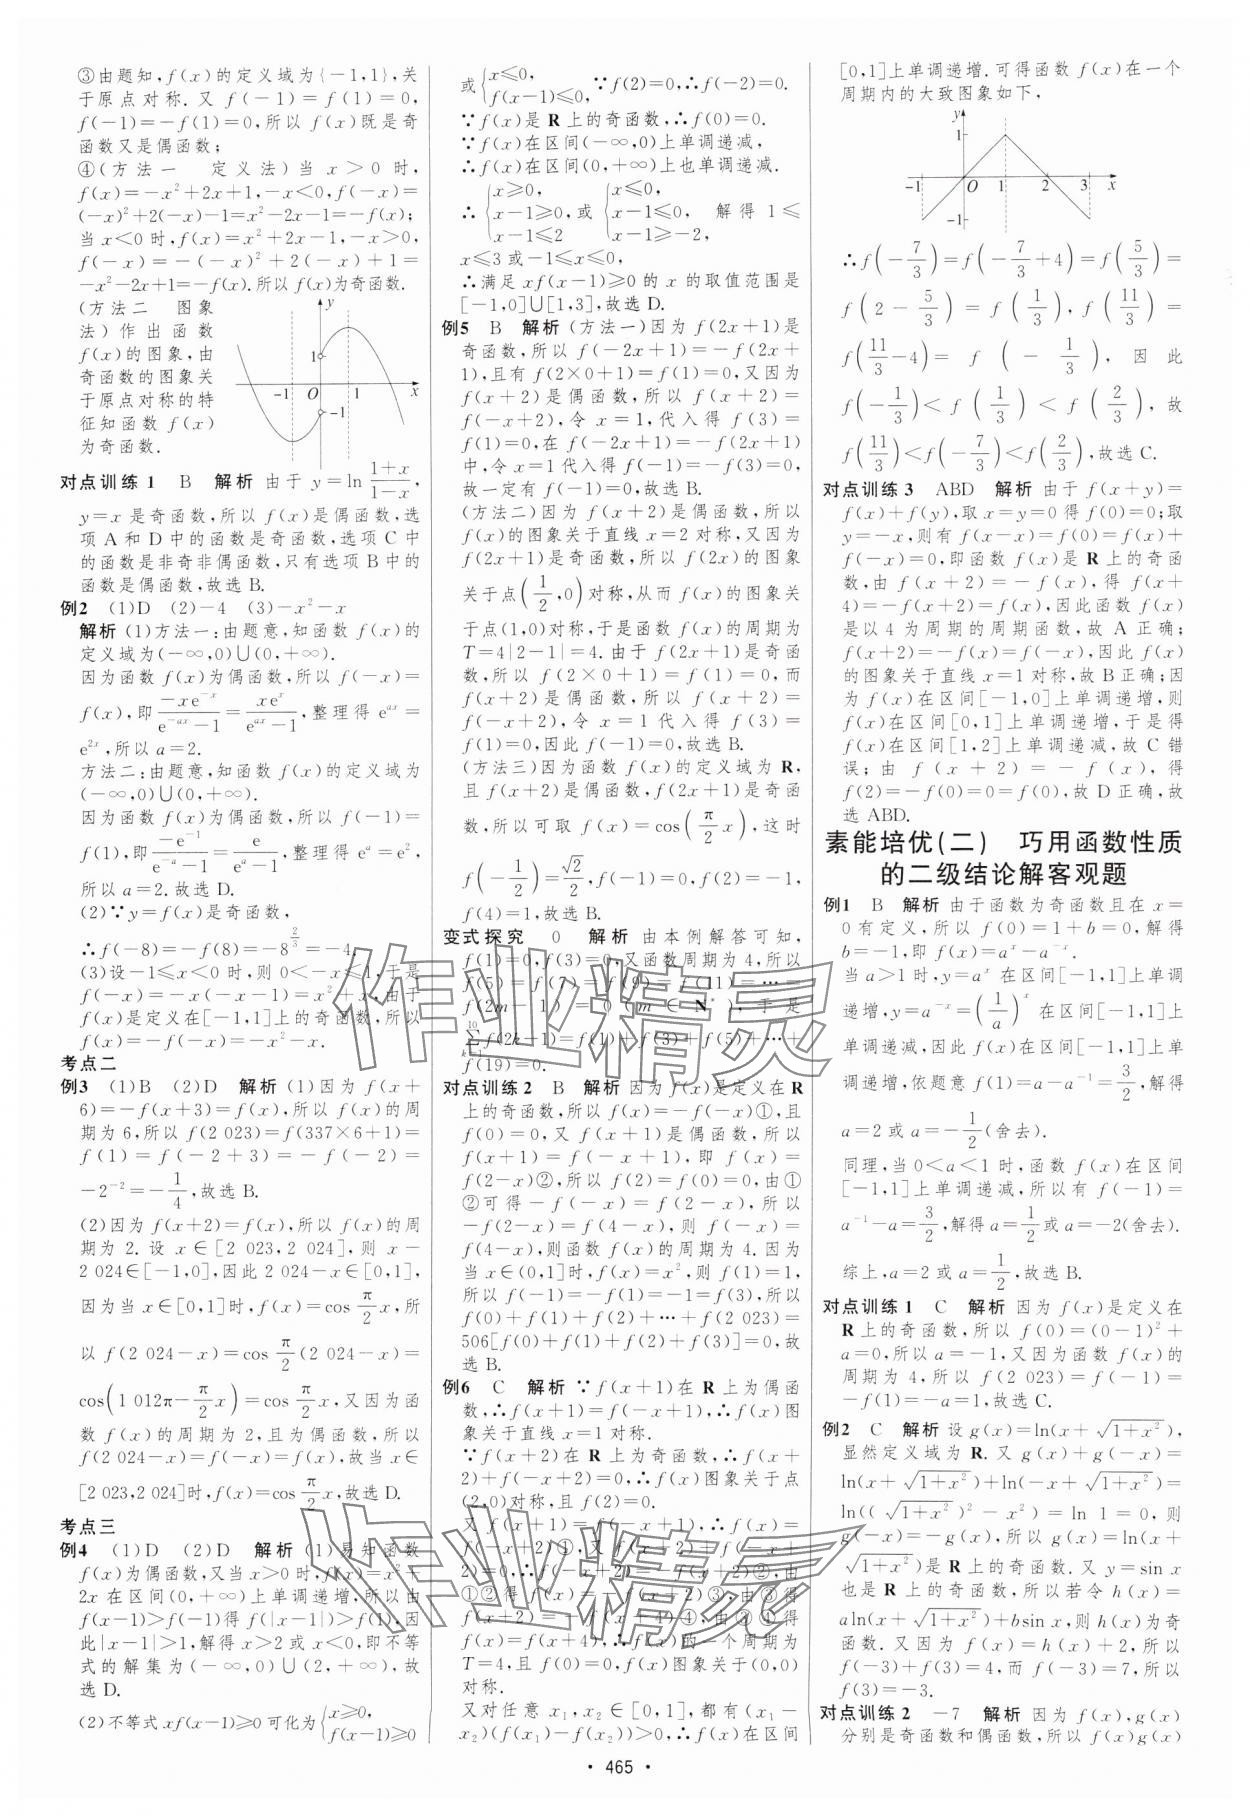 ③由题知,f(x)的定义域为{-1,1},关
于原点对称.又 f(-1)=f(1)=0,
f(-1)=-f(1)=0,所以 f(x)既是奇
函数又是偶函数;
④(方法一 定义法)当 x>0 时,
f(x)=-x²+2x+1,-x<0,f(-x)=
(-x)²+2(-x)-1=x²-2x-1=-f(x);
当 x<0 时,f(x)=x²+2x-1,-x>0,
f(-x)=-(-x)²+2(-x)+1=
-x²-2x+1=-f(x).所以 f(x)为奇函数.
(方法二 图象
法)作出函数
f(x)的图象,由
奇函数的图象关
于原点对称的特
征知函数 f(x)
为奇函数.
y
1
-1 O 1 x
-1
对点训练1 B 解析 由于 y=ln (1+x)/(1-x),
y=x 是奇函数,所以 f(x)是偶函数,选
项 A 和 D 中的函数是奇函数,选项 C 中
的函数是非奇非偶函数,只有选项 B 中的
函数是偶函数,故选 B.
例2 (1)D (2)-4 (3)-x²-x
解析 (1)方法一:由题意,知函数 f(x)的
定义域为(-∞,0)∪(0,+∞).
因为函数 f(x)为偶函数,所以 f(-x)=
f(x),即 (-xe⁻ˣ)/(e⁻ᵃˣ-1)=(xeˣ)/(eᵃˣ-1),整理得 eᵃˣ=
e²ˣ,所以 a=2.
方法二:由题意,知函数 f(x)的定义域为
(-∞,0)∪(0,+∞).
因为函数 f(x)为偶函数,所以 f(-1)=
f(1),即 (-e⁻¹)/(e⁻ᵃ-1)=e/(eᵃ-1),整理得 eᵃ=e²,
所以 a=2.故选 D.
(2)∵y=f(x)是奇函数,
∴f(-8)=-f(8)=-8^(2/3)=-4.
(3)设-1≤x<0 时,则 0<-x≤1,于是
f(-x)=-x(-x-1)=x²+x,由于
f(x)是定义在[-1,1]上的奇函数,所以
f(x)=-f(-x)=-x²-x.
考点二
例3 (1)B (2)D 解析 (1)因为 f(x+
6)=-f(x+3)=f(x),所以 f(x)的周
期为 6,所以 f(2 023)=f(337×6+1)=
f(1)=f(-2+3)=-f(-2)=
-2⁻²=-1/4,故选 B.
(2)因为 f(x+2)=f(x),所以 f(x)的周
期为 2.设 x∈[2 023,2 024],则 x-
2 024∈[-1,0],因此 2 024-x∈[0,1],
因为当 x∈[0,1]时,f(x)=cos π/2 x,所
以 f(2 024-x)=cos π/2(2 024-x)=
cos(1 012π-π/2 x)=cos π/2 x,又因为函
数 f(x)的周期为 2,且为偶函数,所以
f(2 024-x)=f(-x)=f(x),故当 x∈
[2 023,2 024]时,f(x)=cos π/2 x,故选 D.
考点三
例4 (1)D (2)D 解析 (1)易知函数
f(x)为偶函数,又当 x>0 时,f(x)=x²+
2x 在区间(0,+∞)上单调递增,所以由
f(x-1)>f(-1)得 f(|x-1|)>f(1),因
此|x-1|>1,解得 x>2 或 x<0,即不等
式的解集为(-∞,0)∪(2,+∞),故
选 D.
(2)不等式 xf(x-1)≥0 可化为{x≥0, f(x-1)≥0
或{x≤0, f(x-1)≤0. ∵f(2)=0,∴f(-2)=0.
∵f(x)是 R 上的奇函数,∴f(0)=0.
∵f(x)在区间(-∞,0)上单调递减,
∴f(x)在区间(0,+∞)上也单调递减.
∴{x≥0, x-1≥0, x-1≤2 或{x≤0, x-1≤0, x-1≥-2, 解得 1≤
x≤3 或-1≤x≤0,
∴满足 xf(x-1)≥0 的 x 的取值范围是
[-1,0]∪[1,3],故选 D.
例5 B 解析 (方法一)因为 f(2x+1)是
奇函数,所以 f(-2x+1)=-f(2x+
1),且有 f(2×0+1)=f(1)=0,又因为
f(x+2)是偶函数,所以 f(x+2)=
f(-x+2),令 x=1,代入得 f(3)=
f(1)=0,在 f(-2x+1)=-f(2x+1)
中,令 x=1代入得 f(-1)=-f(3)=0,
故一定有 f(-1)=0.故选 B.
(方法二)因为 f(x+2)是偶函数,所以
f(x)的图象关于直线 x=2 对称,又因为
f(2x+1)是奇函数,所以 f(2x)的图象
关于点(1/2,0)对称,从而 f(x)的图象关
于点(1,0)对称,于是函数 f(x)的周期为
T=4|2-1|=4.由于 f(2x+1)是奇函
数,所以 f(2×0+1)=f(1)=0,而
f(x+2)是偶函数,所以 f(x+2)=
f(-x+2),令 x=1代入得 f(3)=
f(1)=0,因此 f(-1)=0,故选 B.
(方法三)因为函数 f(x)的定义域为 R,
且 f(x+2)是偶函数,f(2x+1)是奇函
数,所以可取 f(x)=cos(π/2 x),这时
f(-1/2)=√2/2,f(-1)=0,f(2)=-1,
f(4)=1,故选 B.
变式探究 0 解析 由本例解答可知,
f(1)=0,f(3)=0,又函数周期为 4,所以
f(5)=f(7)=f(9)=f(11)=…=
f(2m-1)=0(m∈N*),于是
∑f(2k-1)=f(1)+f(3)+f(5)+…+
f(19)=0.
对点训练2 B 解析 因为 f(x)是定义在 R
上的奇函数,所以 f(x)=-f(-x)①,且
f(0)=0,又 f(x+1)是偶函数,所以
f(x+1)=f(-x+1),即 f(x)=
f(2-x)②,所以 f(2)=f(0)=0,由①
②可得-f(-x)=f(2-x),所以
-f(2-x)=f(4-x),则 f(x)=
f(4-x),则函数 f(x)的周期为 4.因为
当 x∈(0,1]时,f(x)=x²,则 f(1)=1,
所以 f(-1)=-f(1)=-1=f(3),所以
f(0)+f(1)+f(2)+…+f(2 023)=
506[f(0)+f(1)+f(2)+f(3)]=0,故
选 B.
例6 C 解析 ∵f(x+1)在 R 上为偶函
数,∴f(x+1)=f(-x+1),∴f(x)图
象关于直线 x=1 对称.
∵f(x+2)在 R 上为奇函数,∴f(x+
2)+f(-x+2)=0,∴f(x)图象关于点
(2,0)对称,且 f(2)=0.
又 f(x+1)=f(-x+1),∴f(x)=
f(-x+2)①,又 f(x+2)+f(-x+
2)=0,∴f(x+2)=-f(-x+2)②,由
①②得 f(x)=-f(x+2)③,∴
f(x+2)=-f(x+4)④,由③④得
f(x)=f(x+4),∴f(x)的一个周期为
T=4,且 f(0)=0,f(x)图象关于(0,0)
对称.
又对任意 x₁,x₂∈[0,1],都有(x₁-
x₂)(f(x₁)-f(x₂))>0,∴f(x)在区间
[0,1]上单调递增.可得函数 f(x)在一个
周期内的大致图象如下,
y
1
-1 O 1 2 3 x
-1
∴f(-7/3)=f(-7/3+4)=f(5/3)=
f(2-5/3)=f(1/3),f(11/3)=
f(11/3-4)=f(-1/3),因此
f(-1/3)<f(1/3)<f(2/3),故
f(11/3)<f(-7/3)<f(2/3),故选 C.
对点训练3 ABD 解析 由于 f(x+y)=
f(x)+f(y),取 x=y=0 得 f(0)=0;取
y=-x,则有 f(x-x)=f(0)=f(x)+
f(-x)=0,即函数 f(x)是 R 上的奇函
数,由 f(x+2)=-f(x)得 f(x+
4)=-f(x+2)=f(x),因此函数 f(x)
是以 4 为周期的周期函数,故 A 正确;
f(x+2)=-f(x)=f(-x),因此 f(x)
的图象关于直线 x=1 对称,故 B 正确;因
为 f(x)在区间[-1,0]上单调递增,则
f(x)在区间[0,1]上单调递增,于是得
f(x)在区间[1,2]上单调递减,故 C 错
误;由 f(x+2)=-f(x),得
f(2)=-f(0)=0=f(0),故 D 正确,故
选 ABD.
素能培优(二) 巧用函数性质
的二级结论解客观题
例1 B 解析 由于函数为奇函数且在 x=
0 有定义,所以 f(0)=1+b=0,解得
b=-1,即 f(x)=aˣ-a⁻ˣ.
当 a>1 时,y=aˣ 在区间[-1,1]上单调
递增,y=a⁻ˣ=(1/a)ˣ 在区间[-1,1]上
单调递减,因此 f(x)在区间[-1,1]上单
调递增,依题意 f(1)=a-a⁻¹=3/2,解得
a=2 或 a=-1/2(舍去).
同理,当 0<a<1 时,函数 f(x)在区间
[-1,1]上单调递减,所以有 f(-1)=
a⁻¹-a=3/2,解得 a=1/2或 a=-2(舍去).
综上,a=2 或 a=1/2,故选 B.
对点训练1 C 解析 因为 f(x)是定义在
R 上的奇函数,所以 f(0)=(0-1)²+
a=0,所以 a=-1,又因为函数 f(x)的
周期为 4,所以 f(2 023)=f(-1)=
-f(1)=-a=1,故选 C.
例2 C 解析 设 g(x)=ln(x+√(1+x²)),
显然定义域为 R.又 g(x)+g(-x)=
ln(x+√(1+x²))+ln(-x+√(1+x²))=
ln((√(1+x²))²-x²)=ln 1=0,则
g(-x)=-g(x),所以 g(x)=ln(x+
√(1+x²))是 R 上的奇函数.又 y=sin x
也是 R 上的奇函数,所以若令 h(x)=
aln(x+√(1+x²))+bsin x,则 h(x)为奇
函数.又因为 f(x)=h(x)+2,所以
f(-3)+f(3)=4,而 f(-3)=7,所以
f(3)=-3.
对点训练2 -7 解析 因为 f(x),g(x)
分别是奇函数和偶函数,所以 f(x)g(x)
· 465 ·
作业精灵
作业精灵